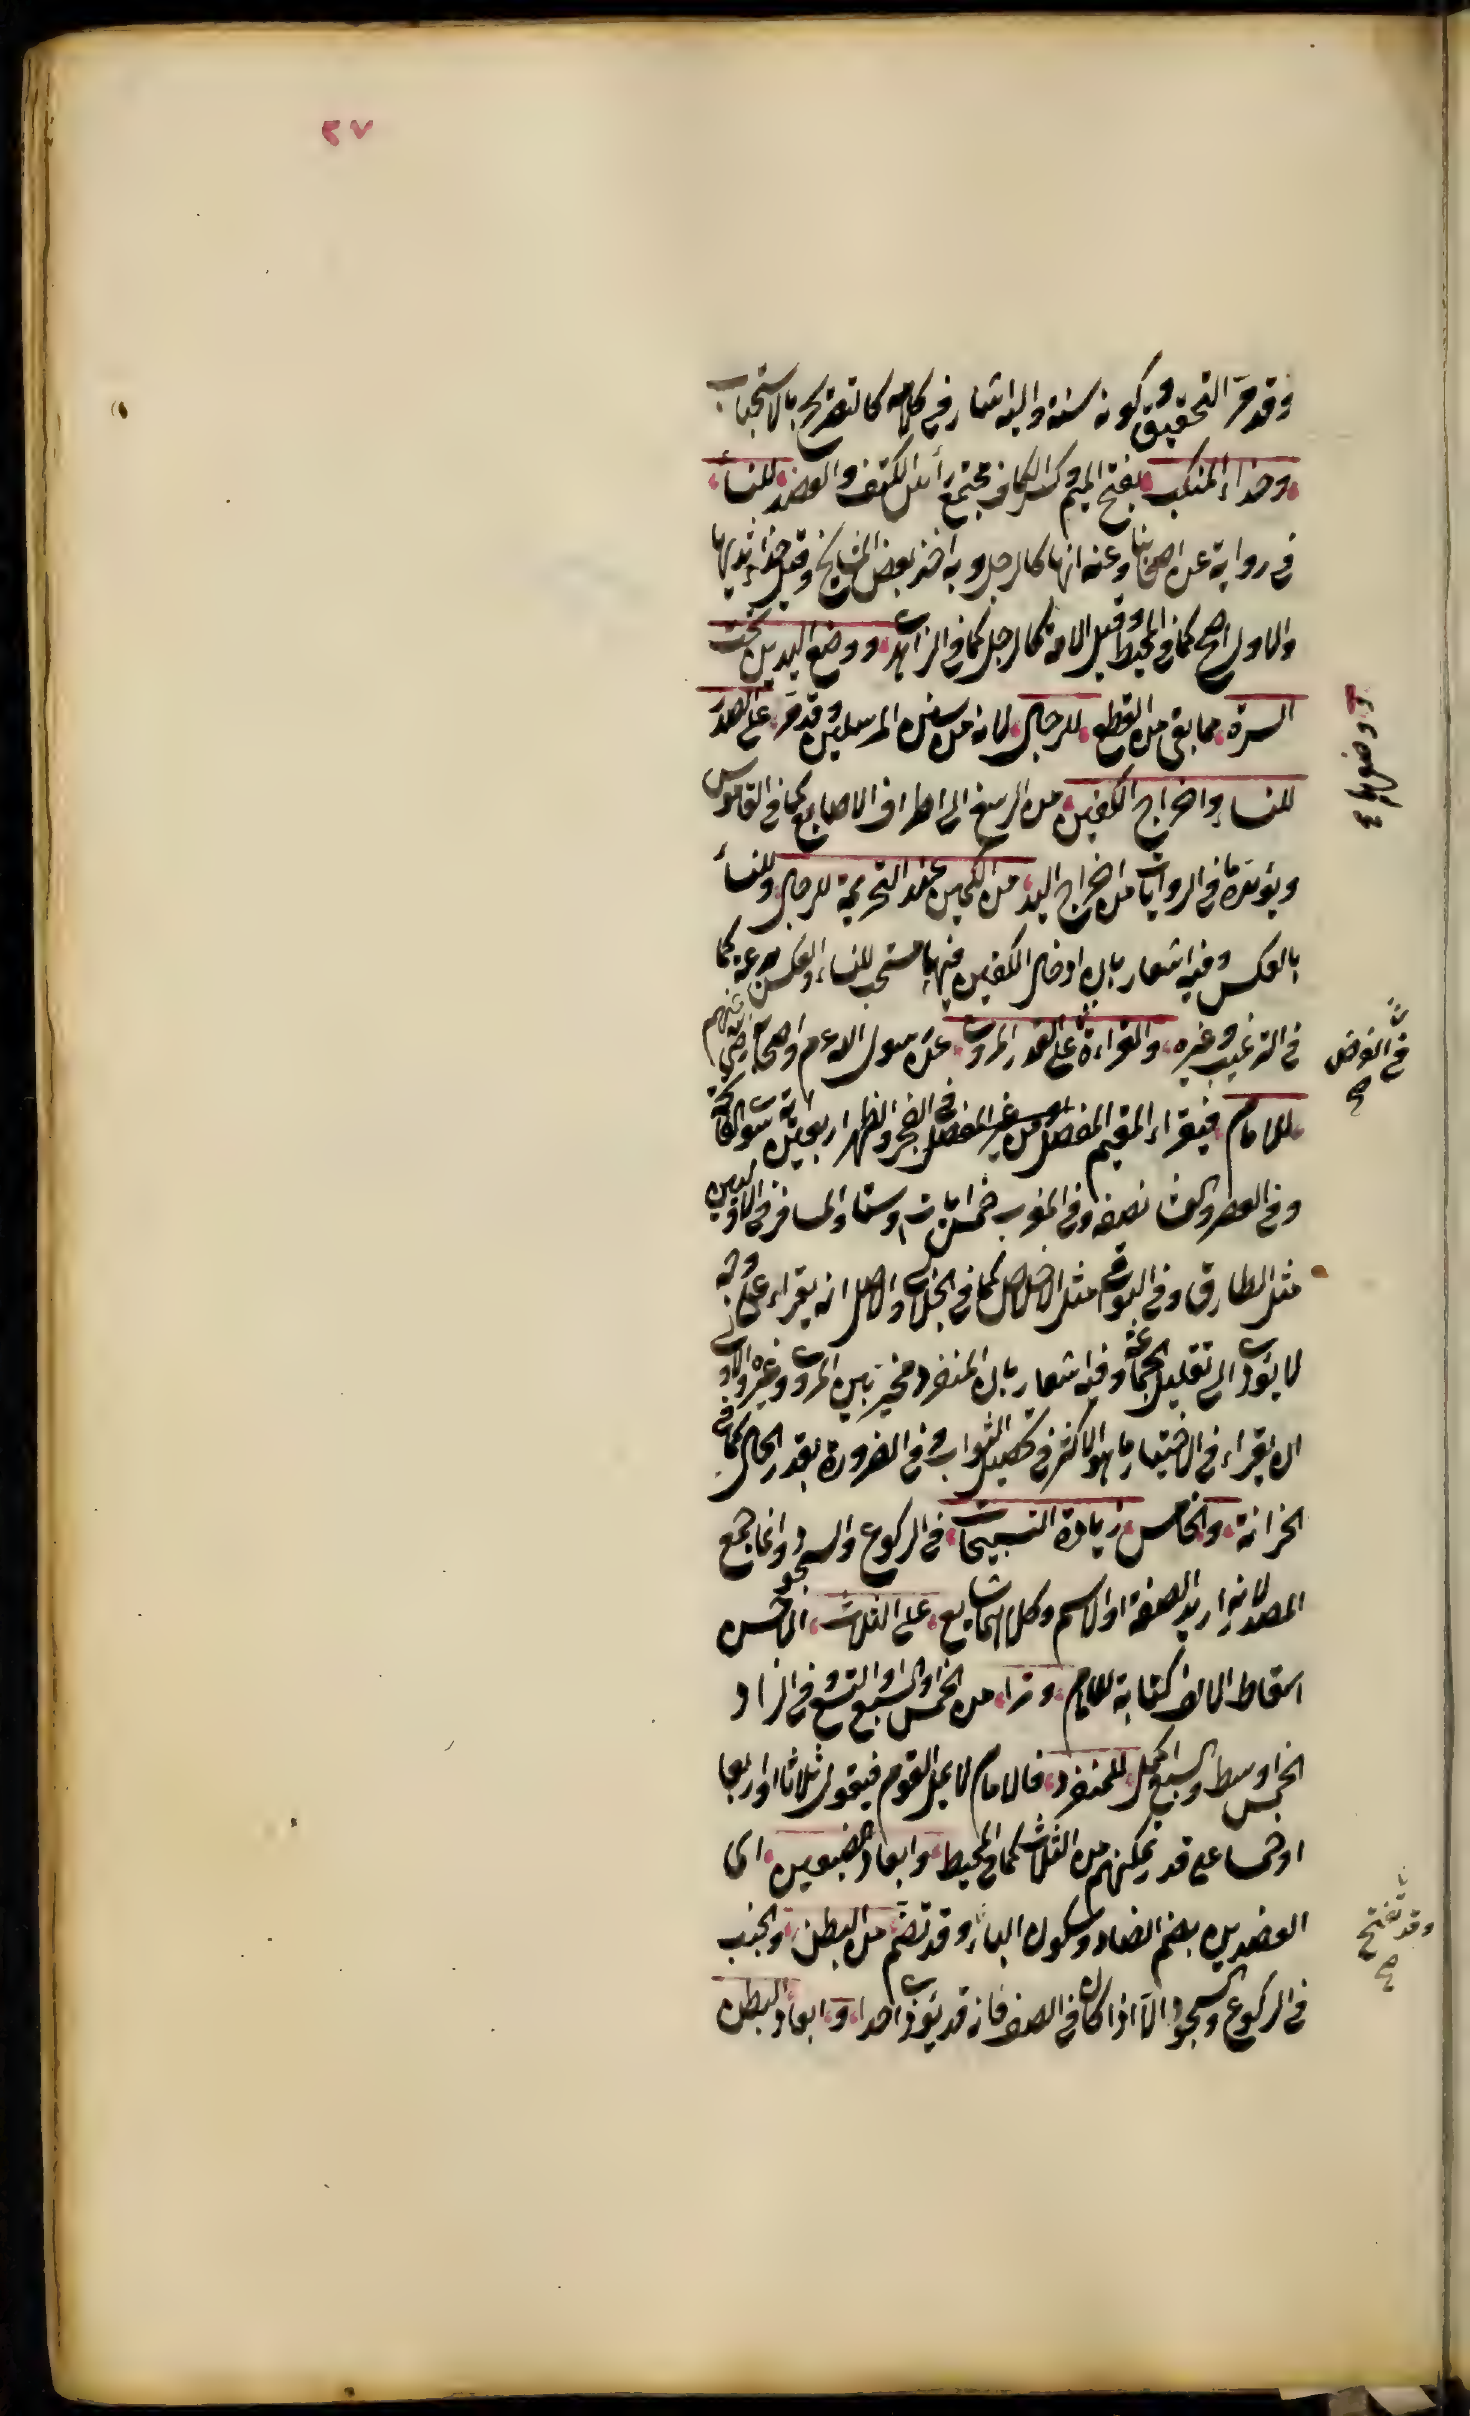 ٢٧
وقد مر التحقيق وكونه سنة واليه اشار في كلامه كالتصريح بالاستحباب
وحذاء المنكب بفتح الميم وكسر الكاف مجتمع رأس الكتف والعضد للنساء
في رواية عن اصحابنا وعنه انها كالرجل وبه اخذ بعض المشايخ وقيل حذاء ثدييها
والاول اصح كما في المحيط وقيل الامة كالرجل كما في الزاهدى ووضع اليدين تحت
السرة مما بقى من القطع للرجال لانه من سنن المرسلين وقد مر على الصدر
للنساء واخراج الكفين من الرسغ الى اطراف الاصابع كما في القاموس
ويؤيده ما في الروايات من اخراج اليد من الكمين عند التحريمة للرجال وللنساء
بالعكس وفيه اشعار بان ادخال الكفين فيهما مستحب للنساء والعكس بدعة كما
في الترغيب وغيره والقراءة على القدر المروى عن رسول الله عم واصحابه رضى عنهم
للامام فيقراء المقيم المفصل من غير المفصل في الفجر والظهر اربعين اية سوى الفاتحة
وفي العصر والعشاء نصفه وفي المغرب خمس آيات او ستا والمسافر في الاوليين
مثل الطارق وفي البواقى مثل الاخلاص كما في الجلابى والاصل انه يقراء على وجه
لا يؤدى الى تقليل الجماعة وفيه اشعار بان المنفرد مخير بين المروى وغيره والاولى
ان يقراء في الاختيار ما هو الاكثر في تحصيل الثواب وفي الضرورة بقدر الحال كما في
الخزانة والخامس زيادة التسبيحات في الركوع والسجود وانما جمع
المصدر لانه اريد الصفة او الاسم وكلاهما شايع على الثلاث الاحسن
اسقاط الالف كتابة للامام وترا من الخمس او السبع او التسع وفي الزاد
الخمس اوسط والسبع اكمل للمنفرد فالامام لا يمل القوم فيقول ثلاثا او اربعا
او خمسا على قدر تمكنهم من الثلاث كما في المحيط وابعاد الضبعين اى
العضدين بضم الضاد وسكون الباء وقد تضم من البطن والجنب
في الركوع والسجود الا اذا كان في الصف فانه قد يؤذى احدا وابعاد البطن
ووضعهما
في الفرض
صح
وقد تفتح
صح